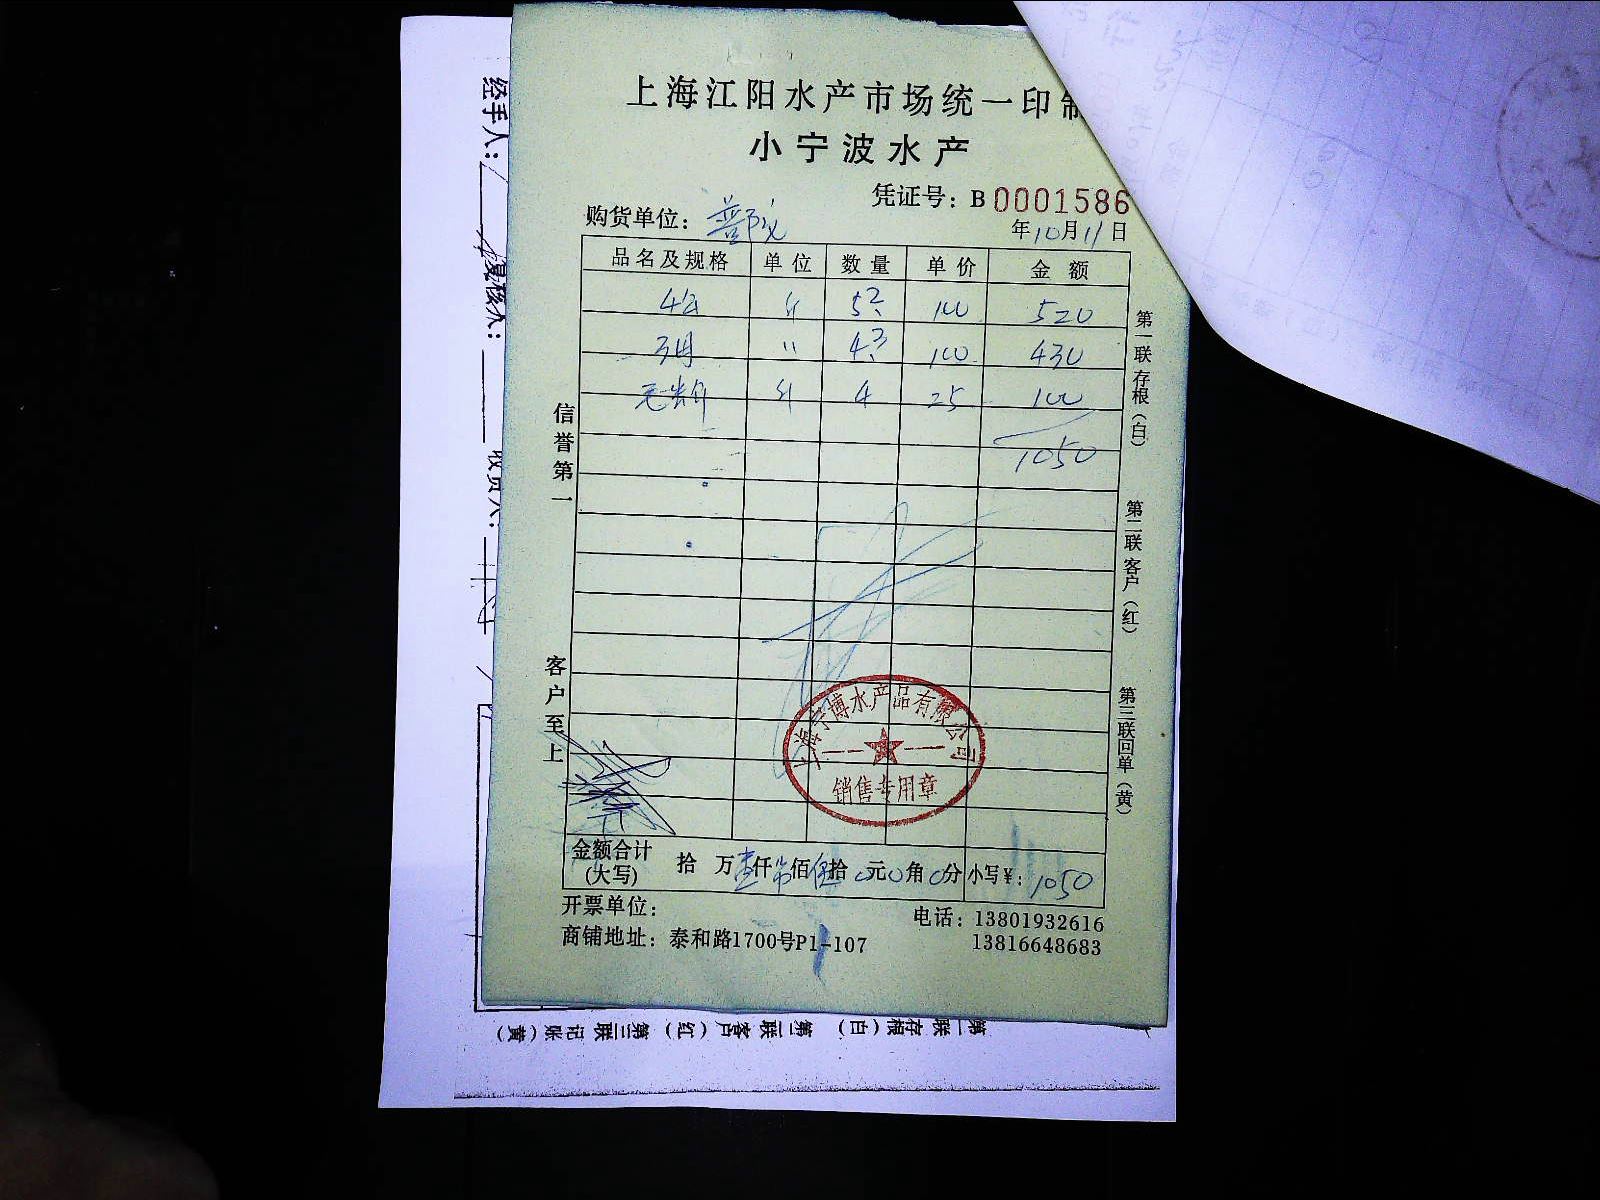 上海江阳水产市场统一印制
小宁波水产
凭证号：B 0001586
购货单位：
年10月11日
品名及规格 单位 数量 单价 金额
斤 5.2 100 520
〃 4.3 100 430
斤 4 25 100
1050
信誉第一
客户至上
第一联存根（白）
第二联客户（红）
第三联回单（黄）
上海宁博水产品有限公司
销售专用章
金额合计（大写） 拾 万壹仟 佰伍拾0元0角0分 小写¥：1050
开票单位：
电话：13801932616
商铺地址：泰和路1700号P1-107
13816648683
经手人：
复核人：
收货人：
第一联 存根（白） 第二联 客户（红） 第三联 记账（黄）